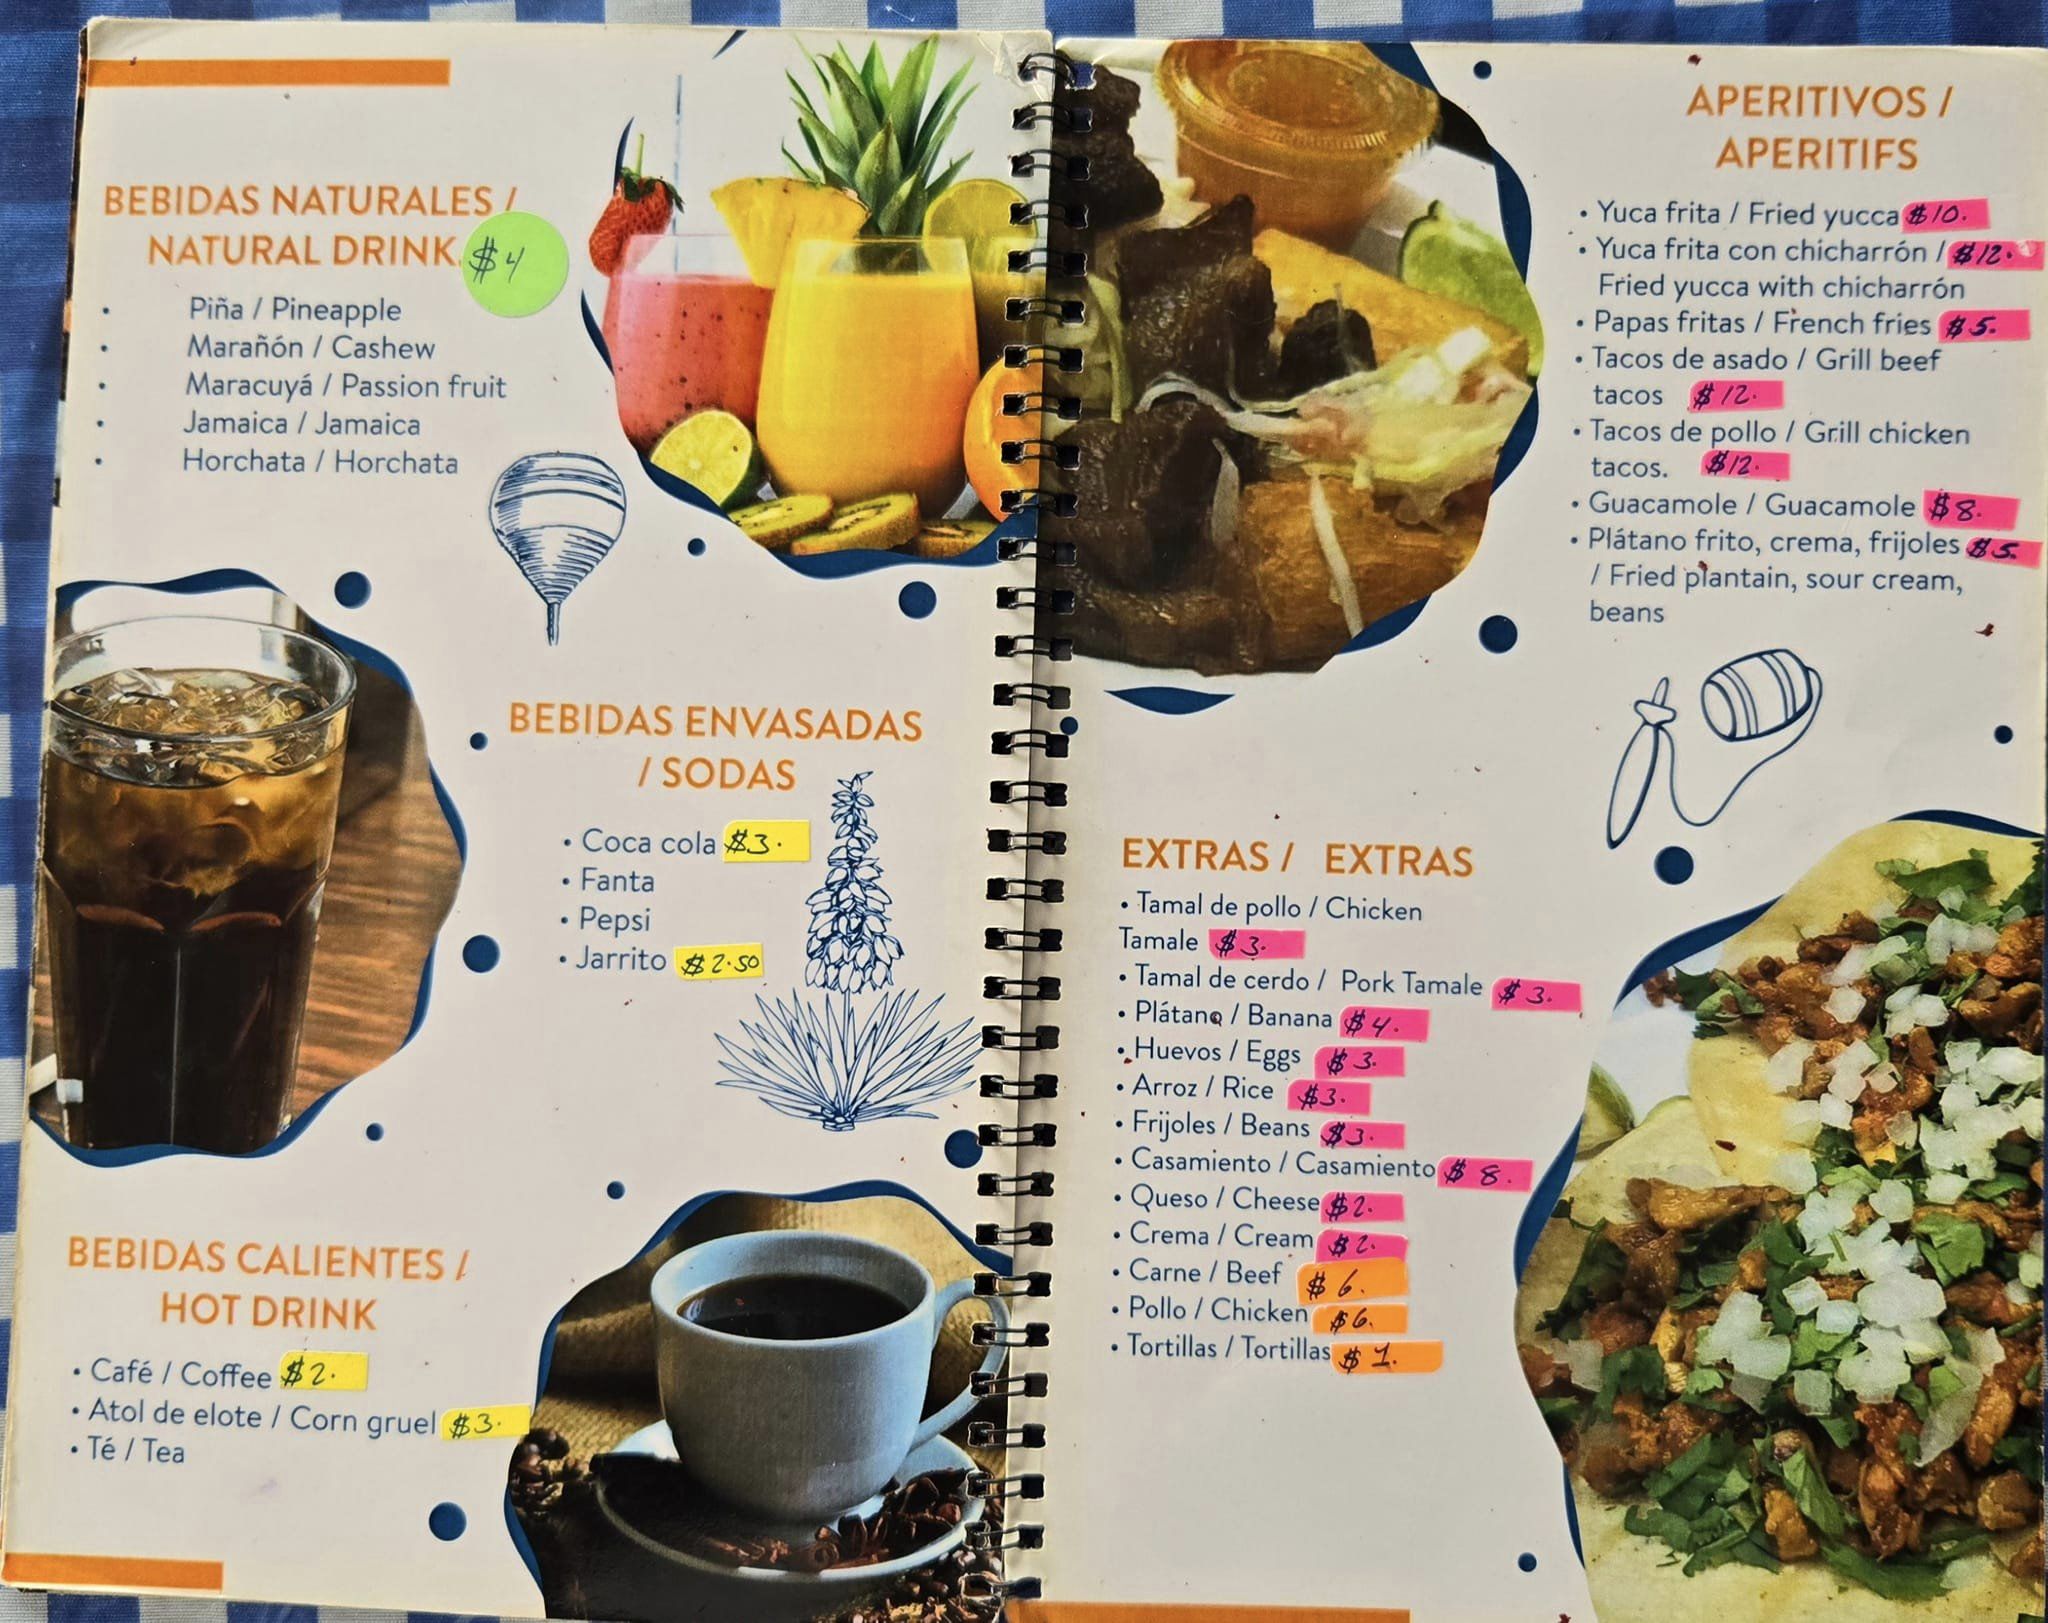 BEBIDAS NATURALES /
NATURAL DRINK
$4
• Piña / Pineapple
• Marañón / Cashew
• Maracuyá / Passion fruit
• Jamaica / Jamaica
• Horchata / Horchata
BEBIDAS ENVASADAS
/ SODAS
• Coca cola $3.
• Fanta
• Pepsi
• Jarrito $2.50
BEBIDAS CALIENTES /
HOT DRINK
• Café / Coffee $2.
• Atol de elote / Corn gruel $3.
• Té / Tea
APERITIVOS /
APERITIFS
• Yuca frita / Fried yucca $10.
• Yuca frita con chicharrón / $12.
Fried yucca with chicharrón
• Papas fritas / French fries $5.
• Tacos de asado / Grill beef
tacos $12.
• Tacos de pollo / Grill chicken
tacos. $12.
• Guacamole / Guacamole $8.
• Plátano frito, crema, frijoles $5.
/ Fried plantain, sour cream,
beans
EXTRAS / EXTRAS
• Tamal de pollo / Chicken
Tamale $3.
• Tamal de cerdo / Pork Tamale $3.
• Plátano / Banana $4.
• Huevos / Eggs $3.
• Arroz / Rice $3.
• Frijoles / Beans $3.
• Casamiento / Casamiento $8.
• Queso / Cheese $2.
• Crema / Cream $2.
• Carne / Beef $6.
• Pollo / Chicken $6.
• Tortillas / Tortillas $1.